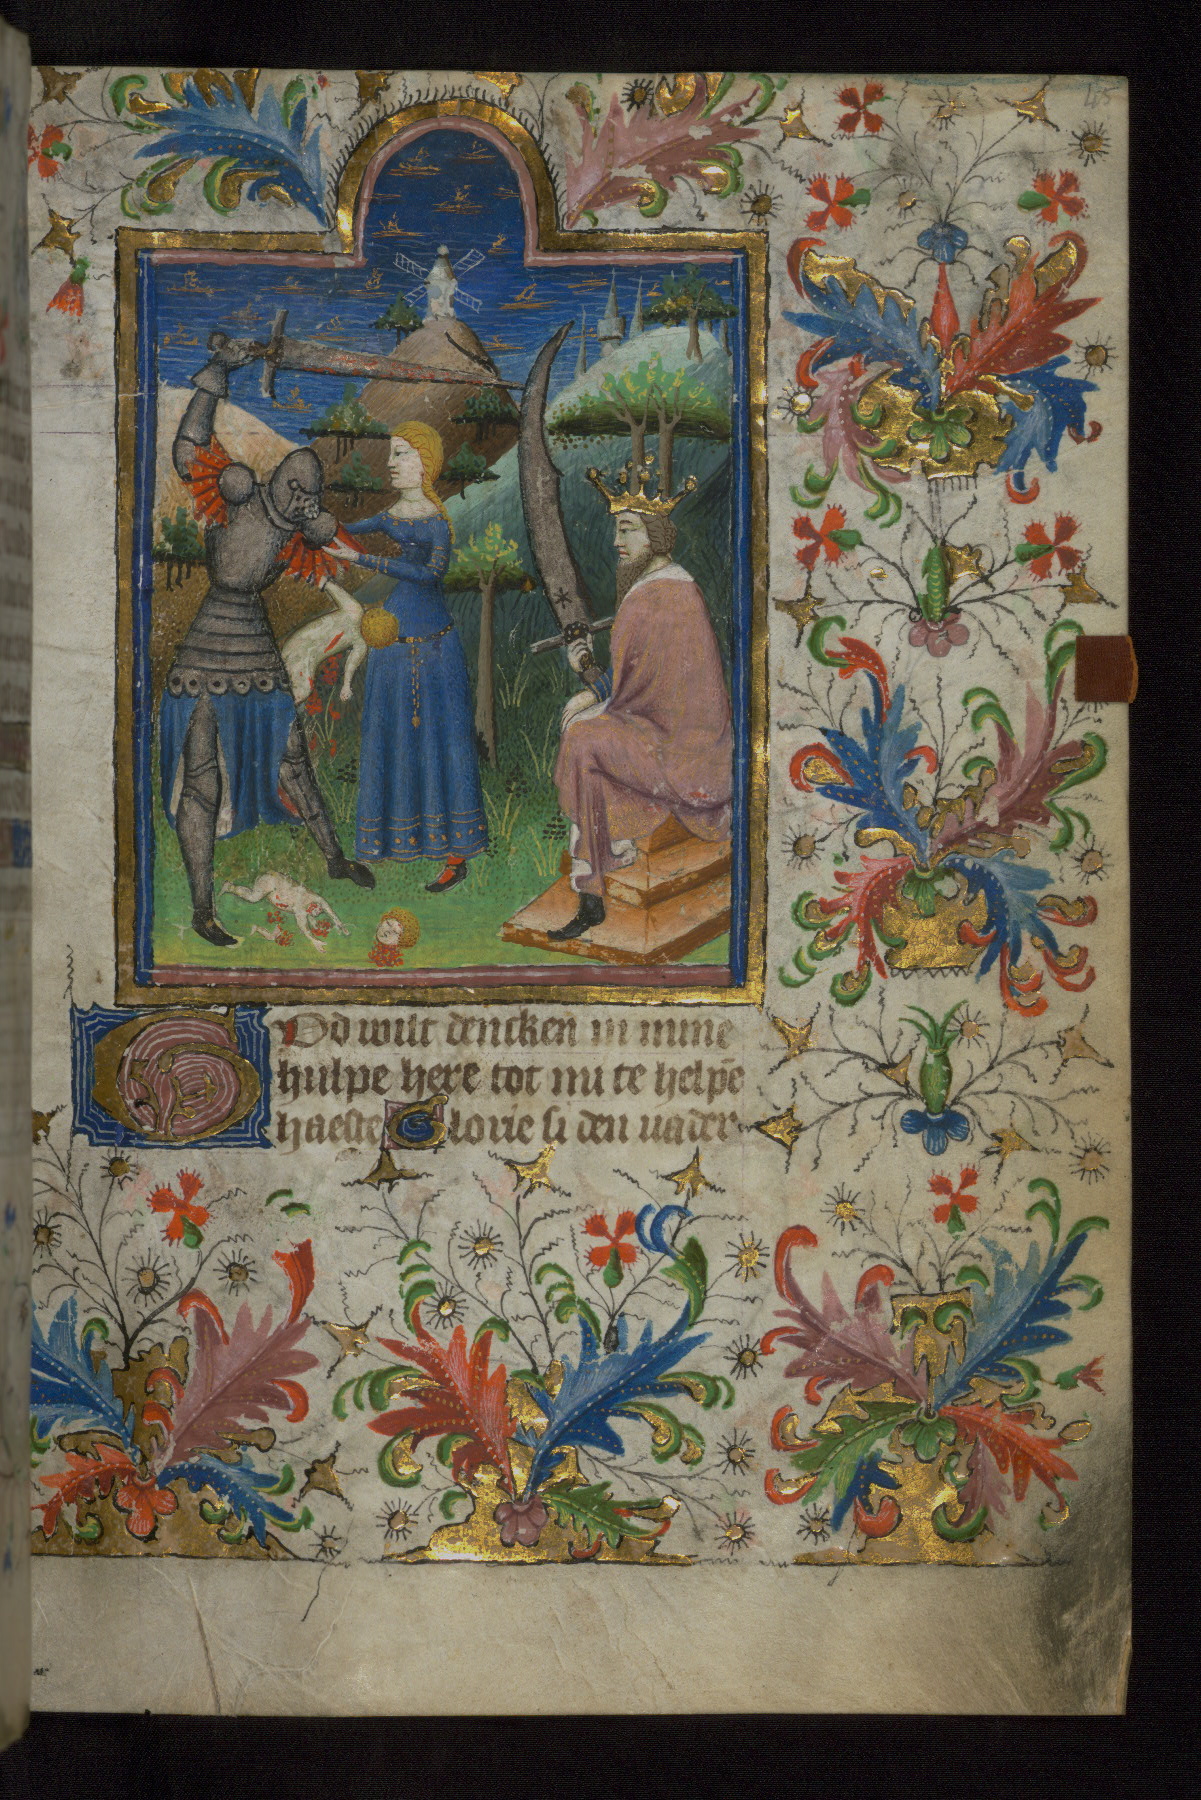 God wilt dencken in mine
hulpe here tot mi te helpē
haeste Glorie si den uader